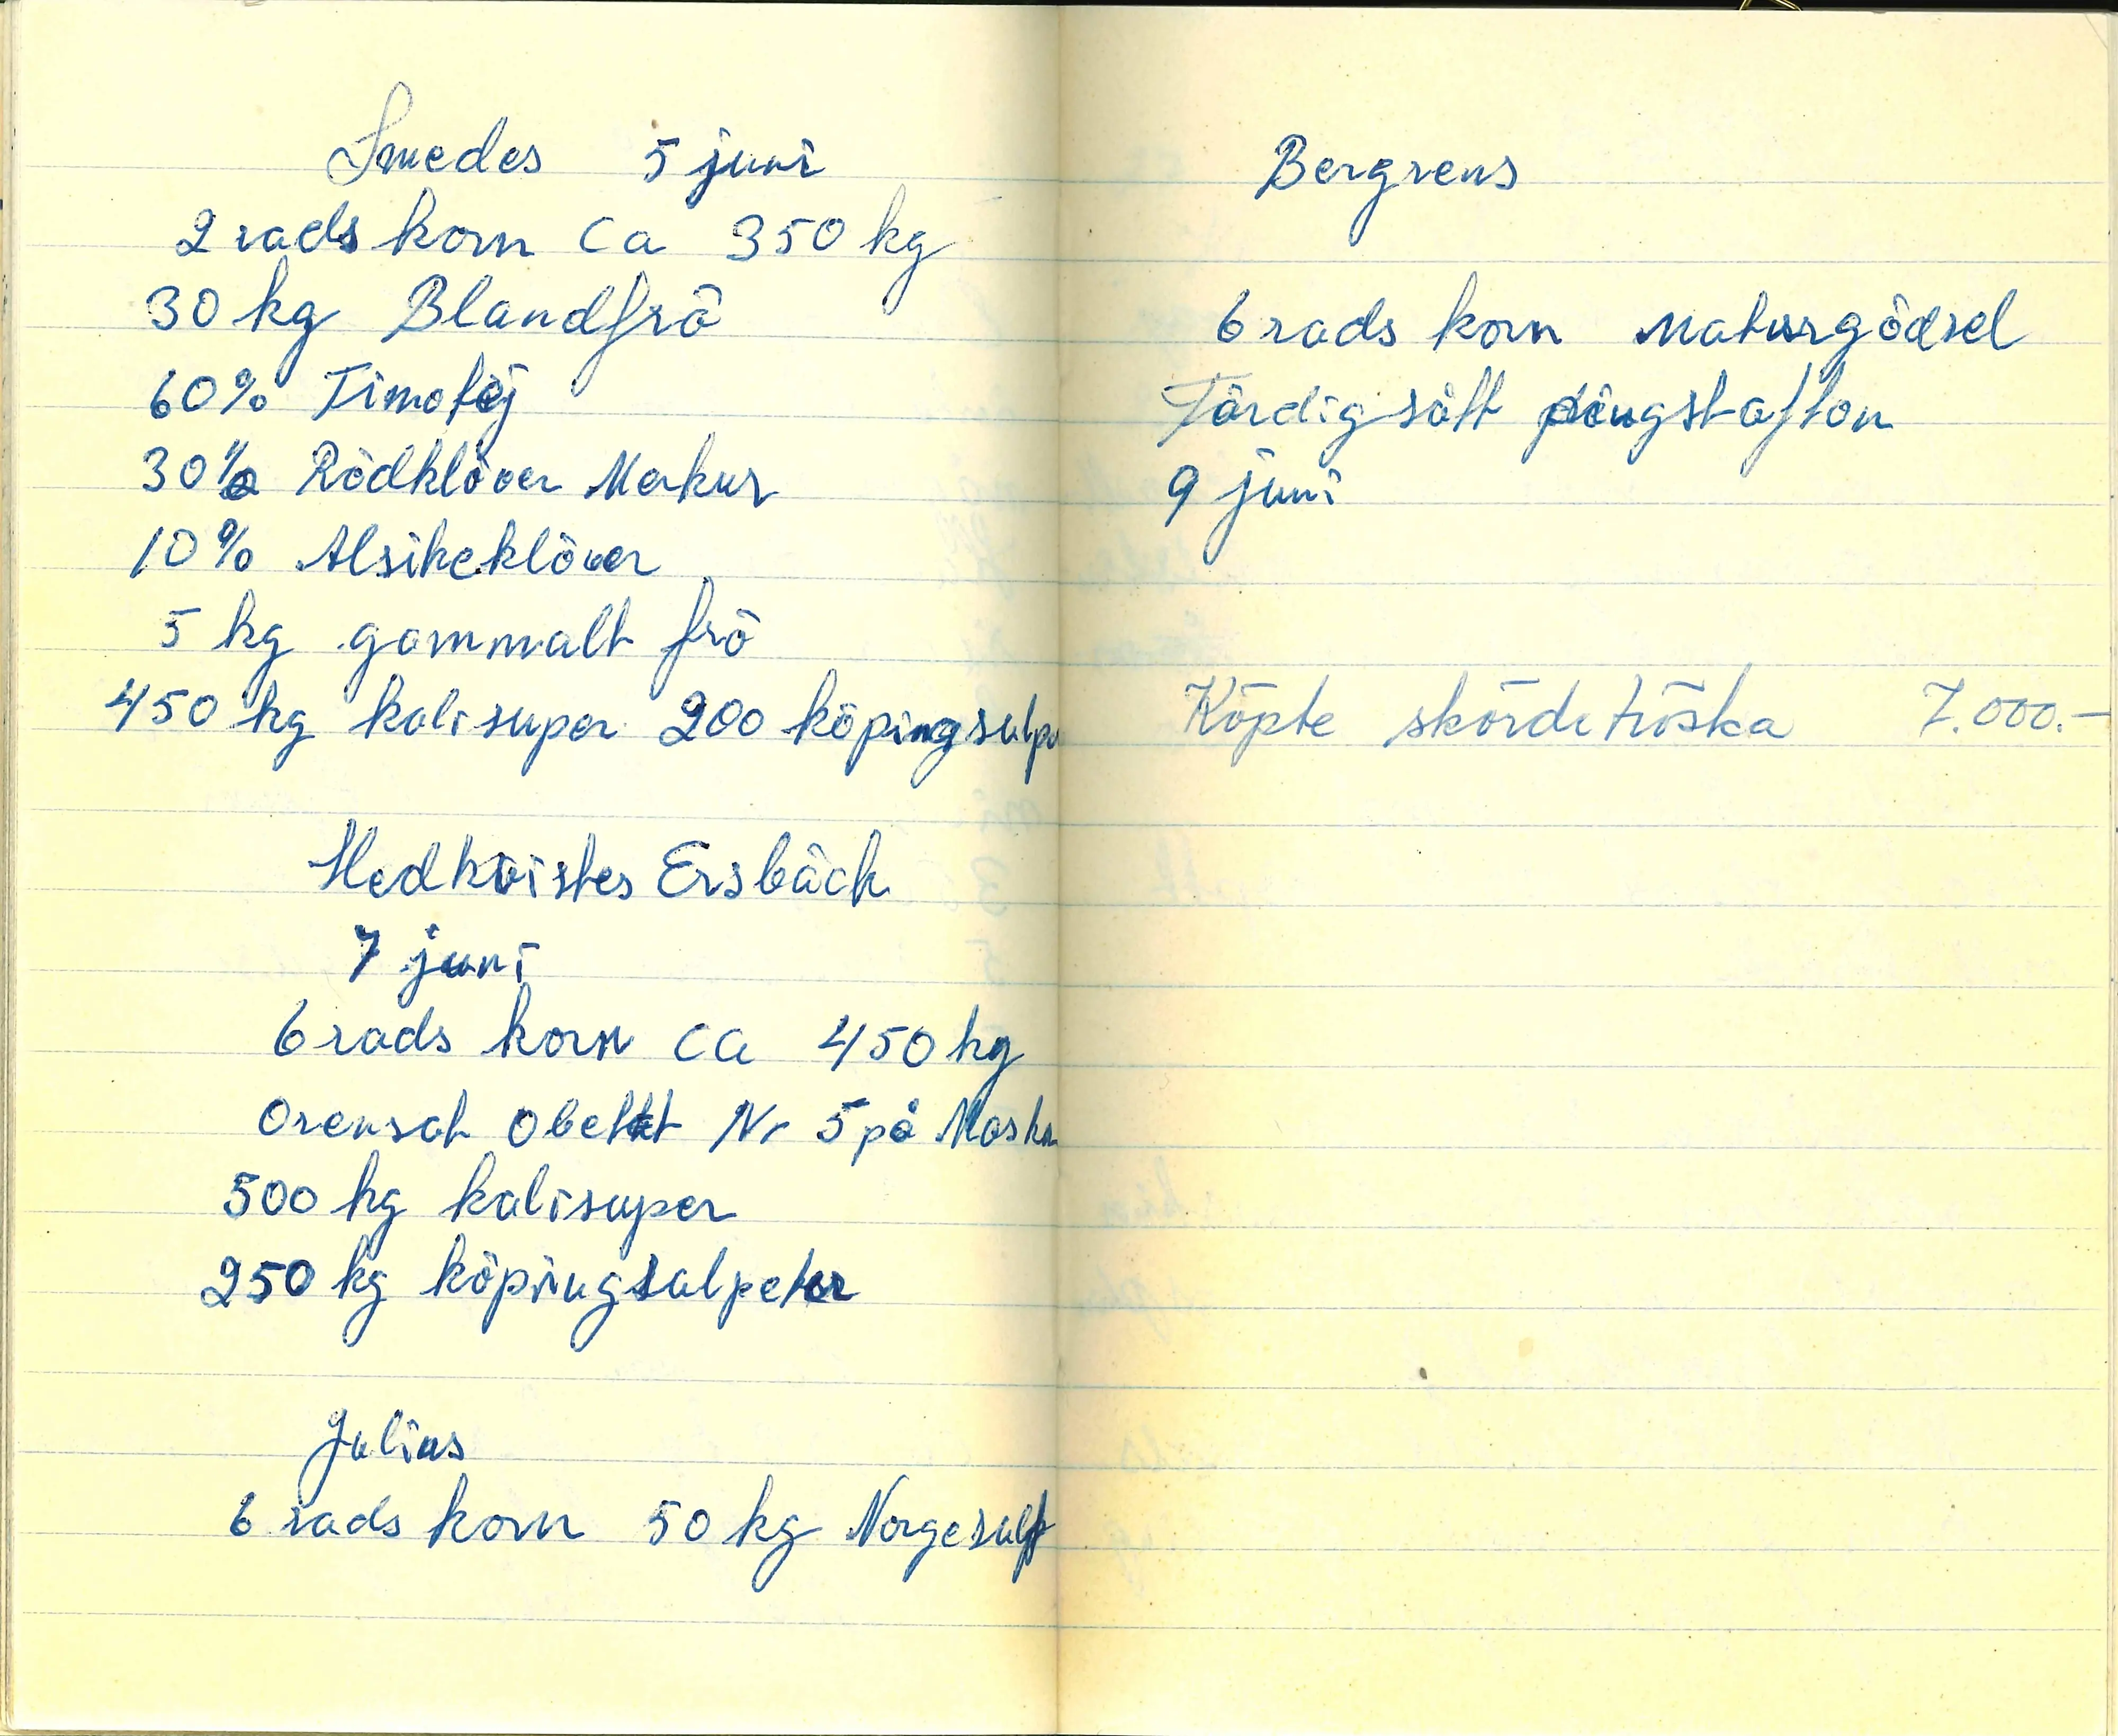 Smedes 5 juni
2 rads korn ca 350 kg
30 kg Blandfrö
60% Timotej
30% Rödklöver Merkur
10% Alsikeklöver
5 kg gammalt frö
450 kg kalisuper 200 köpingsalpe
Hedkvistes Ersbäck
7 juni
6 rads korn ca 450 kg
Orensat Obetat Nr 5 på Maskn
500 kg kalisuper
250 kg köpingsalpeter
Julius
6 rads korn 50 kg Norgesalp
Bergrens
6 rads korn Naturgödsel
Färdig sått pingstafton
9 juni
Köpte skördetröska 7.000.-